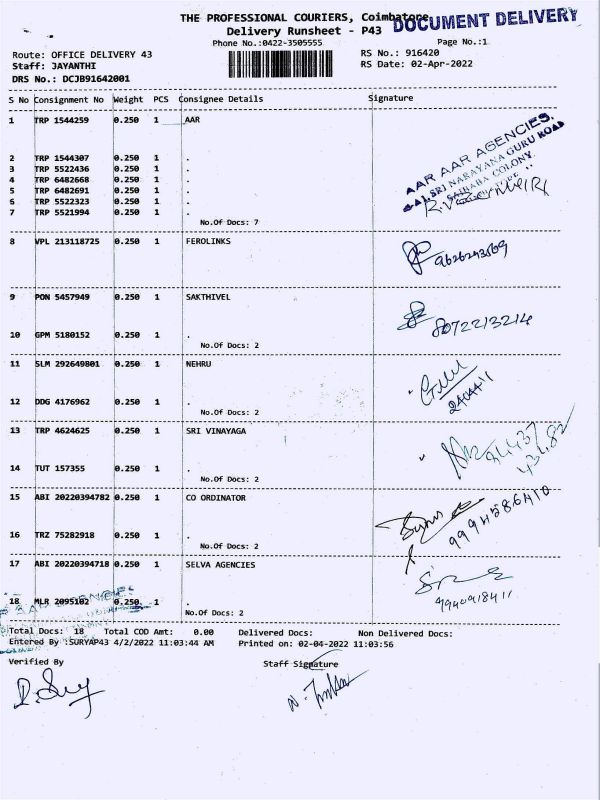 THE PROFESSIONAL COURIERS, Coimbatore
DOCUMENT DELIVERY
Delivery Runsheet - P43
Phone No.:0422-3505555
Page No.:1
Route: OFFICE DELIVERY 43
RS No.: 916420
Staff: JAYANTHI
RS Date: 02-Apr-2022
DRS No.: DCJB91642001
S No Consignment No Weight PCS Consignee Details Signature
1 TRP 1544259 0.250 1 AAR
AAR AAR AGENCIES,
SRI NARAYANA GURU ROAD
SAIBABA COLONY
2 TRP 1544307 0.250 1 .
3 TRP 5522436 0.250 1 .
4 TRP 6482668 0.250 1 .
5 TRP 6482691 0.250 1 .
6 TRP 5522323 0.250 1 .
7 TRP 5521994 0.250 1 .
No.Of Docs: 7
8 VPL 213118725 0.250 1 FEROLINKS
9626293569
9 PON 5457949 0.250 1 SAKTHIVEL
8072213214
10 GPM 5180152 0.250 1 .
No.Of Docs: 2
11 SLM 292649801 0.250 1 NEHRU
12 DDG 4176962 0.250 1 .
No.Of Docs: 2
13 TRP 4624625 0.250 1 SRI VINAYAGA
14 TUT 157355 0.250 1 .
No.Of Docs: 2
15 ABI 20220394782 0.250 1 CO ORDINATOR
9994586410
16 TRZ 75282918 0.250 1 .
No.Of Docs: 2
17 ABI 20220394718 0.250 1 SELVA AGENCIES
9940918411
18 MLR 2095102 0.250 1 .
No.Of Docs: 2
Total Docs: 18 Total COD Amt: 0.00 Delivered Docs: Non Delivered Docs:
Entered By :SURYAP43 4/2/2022 11:03:44 AM Printed on: 02-04-2022 11:03:56
Verified By Staff Signature